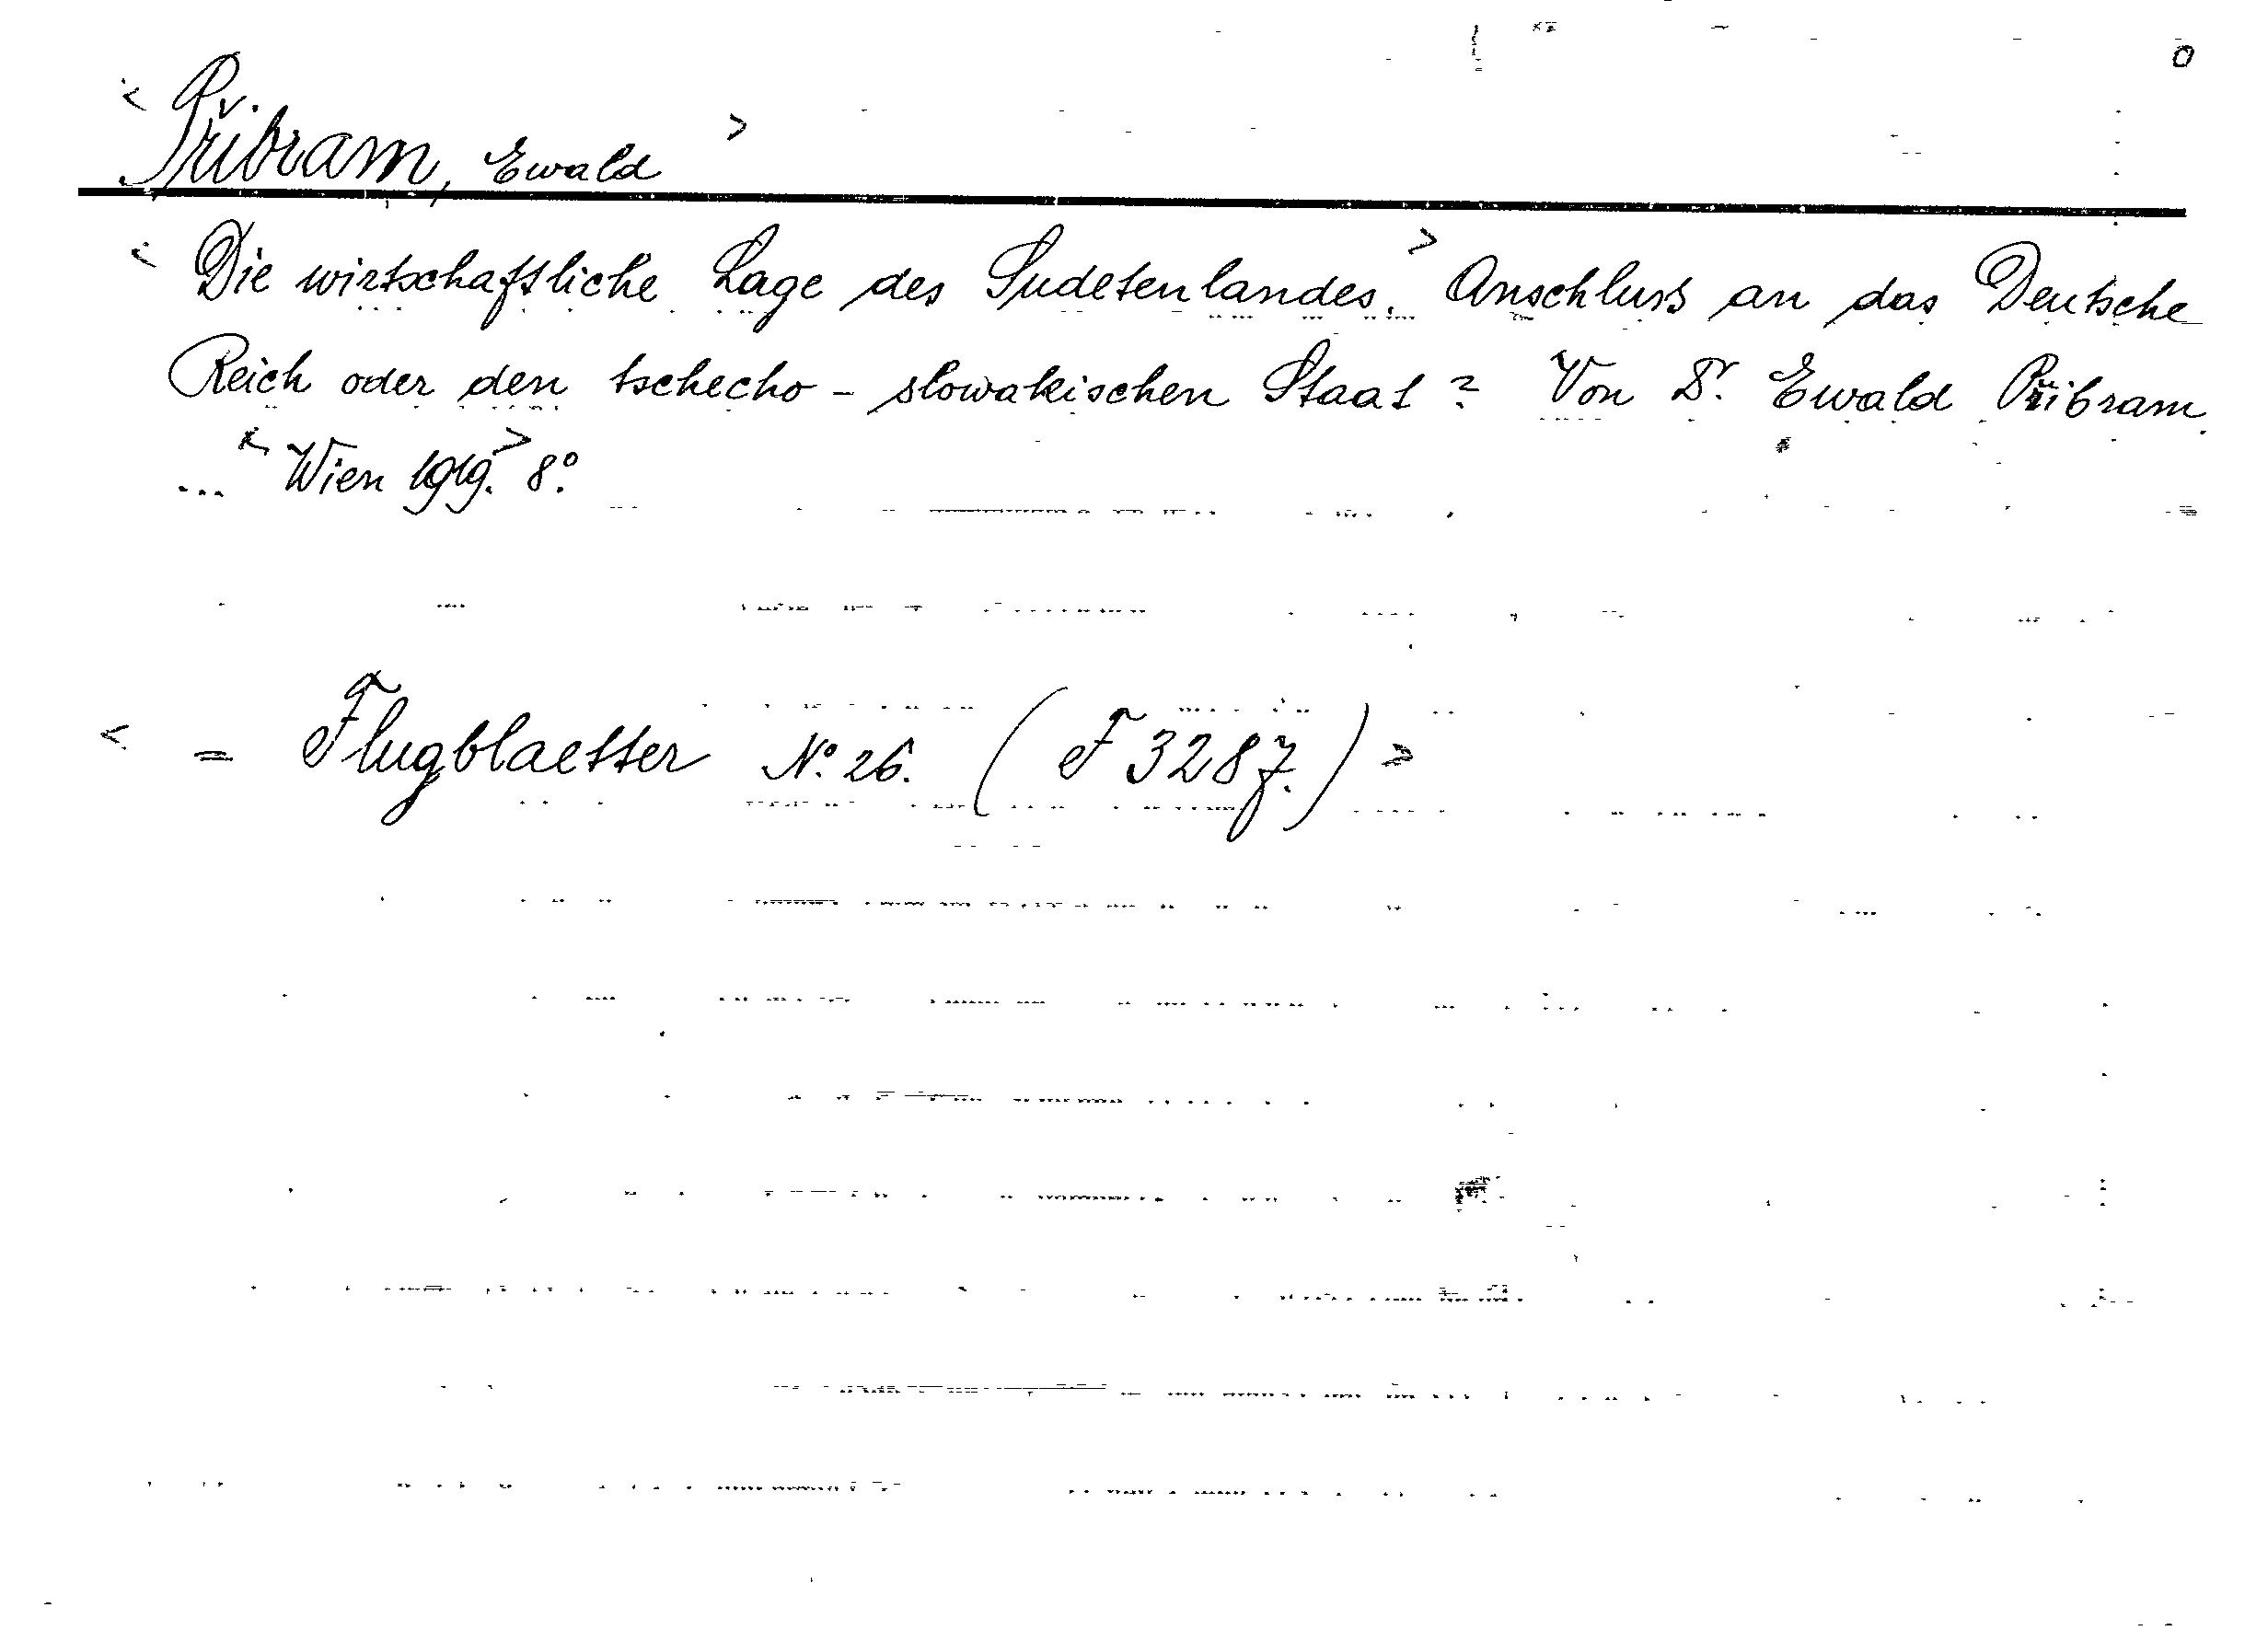 o
< Přibram, Ewald >
< Die wirtschaftliche Lage des Sudetenlandes. > Anschluss an das Deutsche
Reich oder den tschecho-slowakischen Staat? Von Dr. Ewald Přibram
... < Wien 1919. > 8°.
< = Flugblaetter No. 26. (F 3287.) >